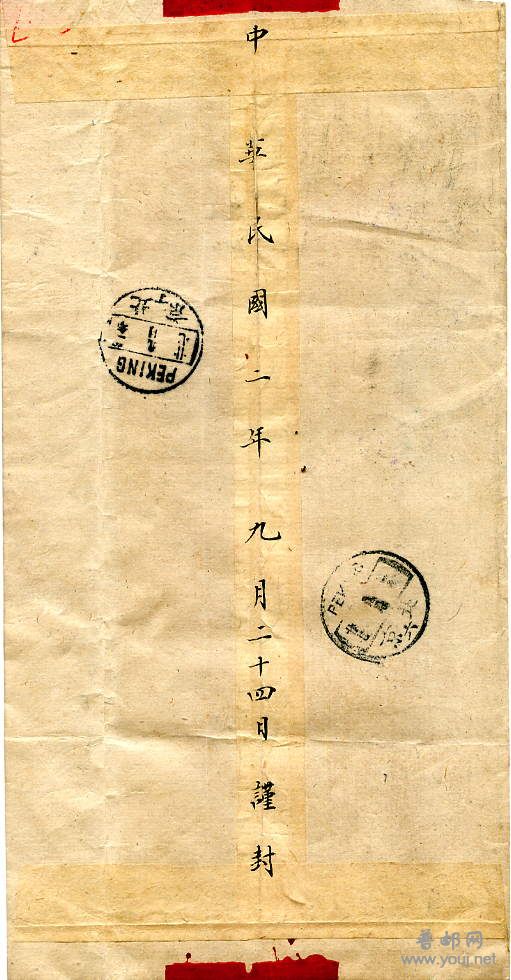 中華民國二年九月二十四日謹封
PEKING
北京
PEK
北京
普邮网
www.youj.net